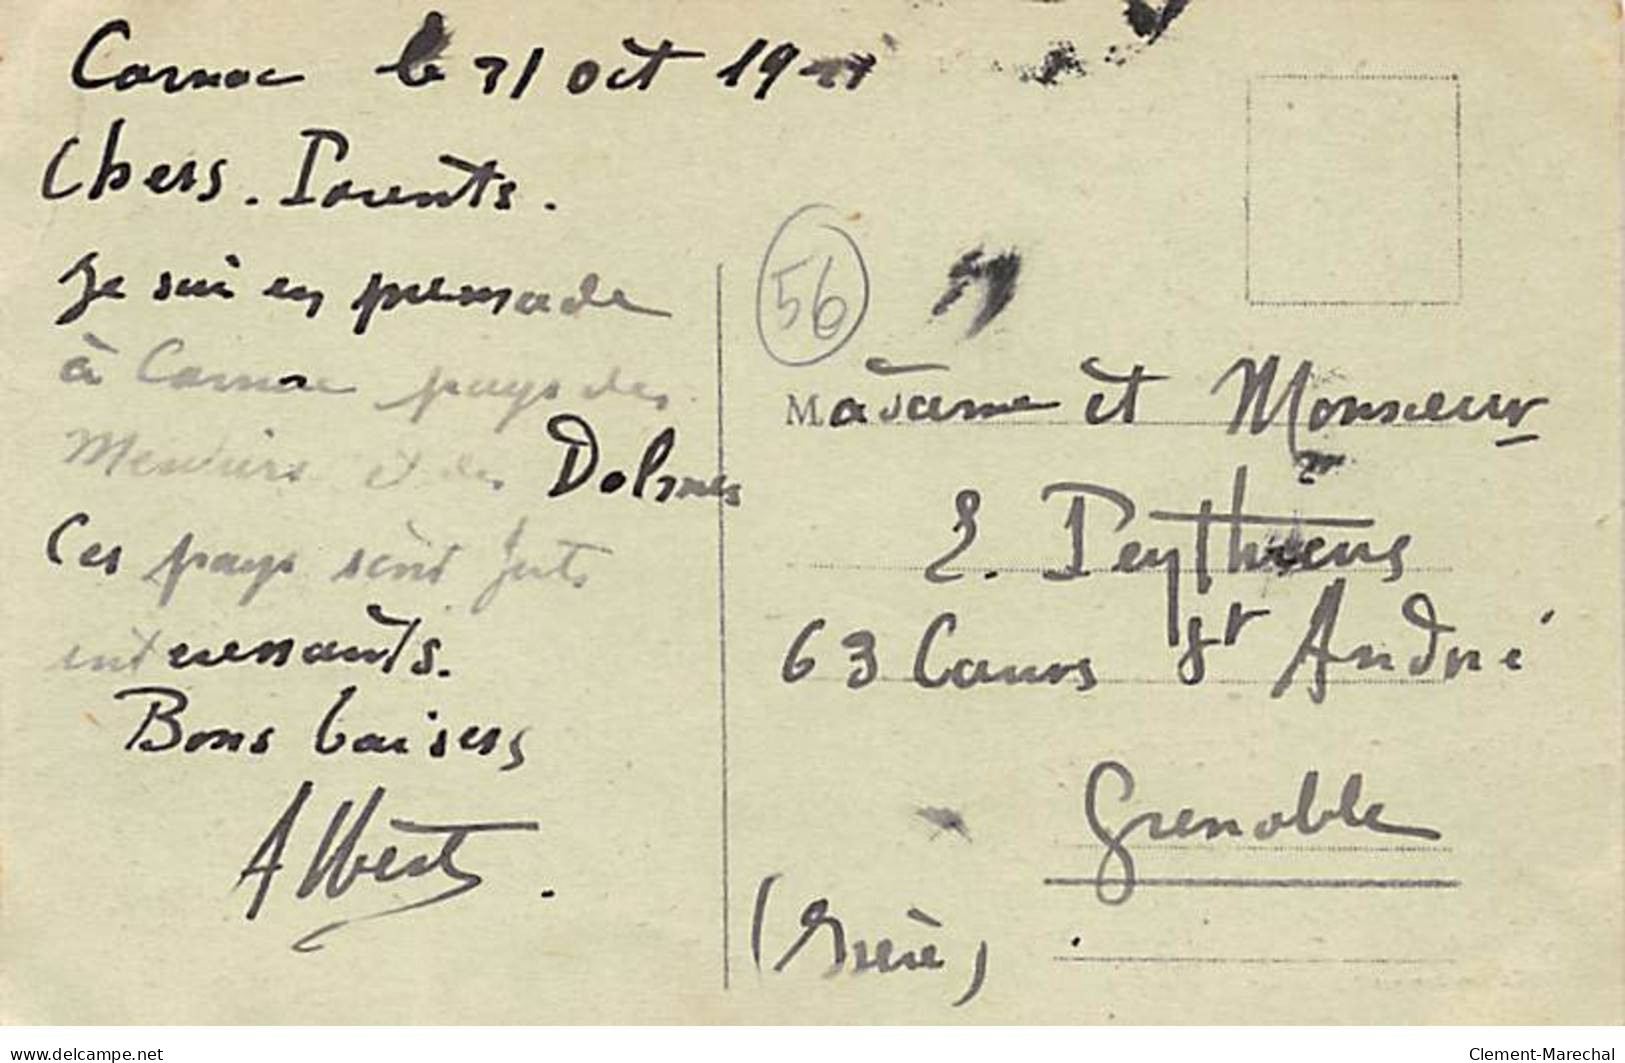 Carnac le 31 oct 19
Chers. Parents.
Je sui en promenade
à Carnac pays des
Menhirs et des Dolmes
Ces pays sont forts
interessants.
Bons baisers
Albert.
56
Madame et Monsieur
E. Peythieus
63 Cours St André
Grenoble
(Isère)
www.delcampe.net
Clement-Marechal